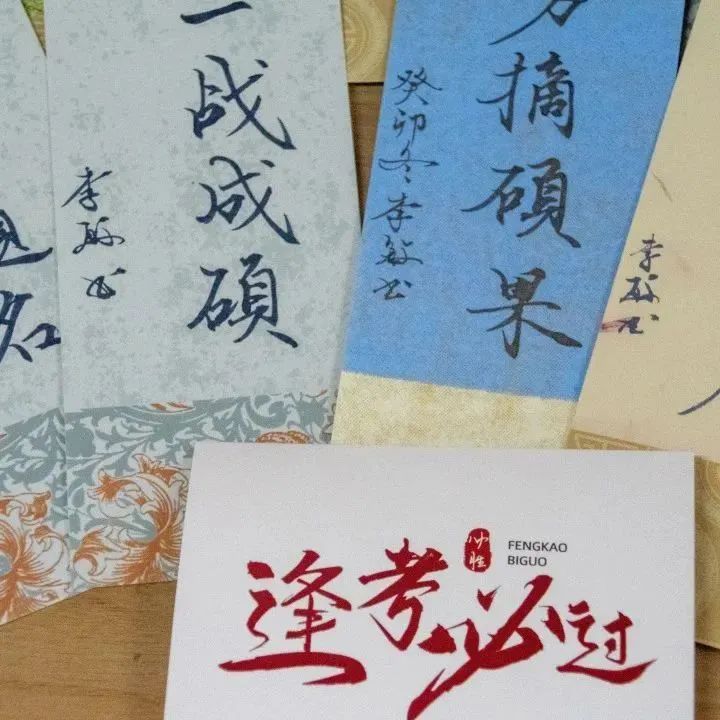 一战成硕
李敏书
摘硕果
癸卯冬李敏书
李敏书
必胜
FENGKAO
BIGUO
逢考必过